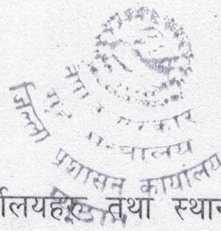 नेपाल सरकार
गृह मन्त्रालय
जिल्ला प्रशासन कार्यालय
र्यालयहरु तथा स्थान